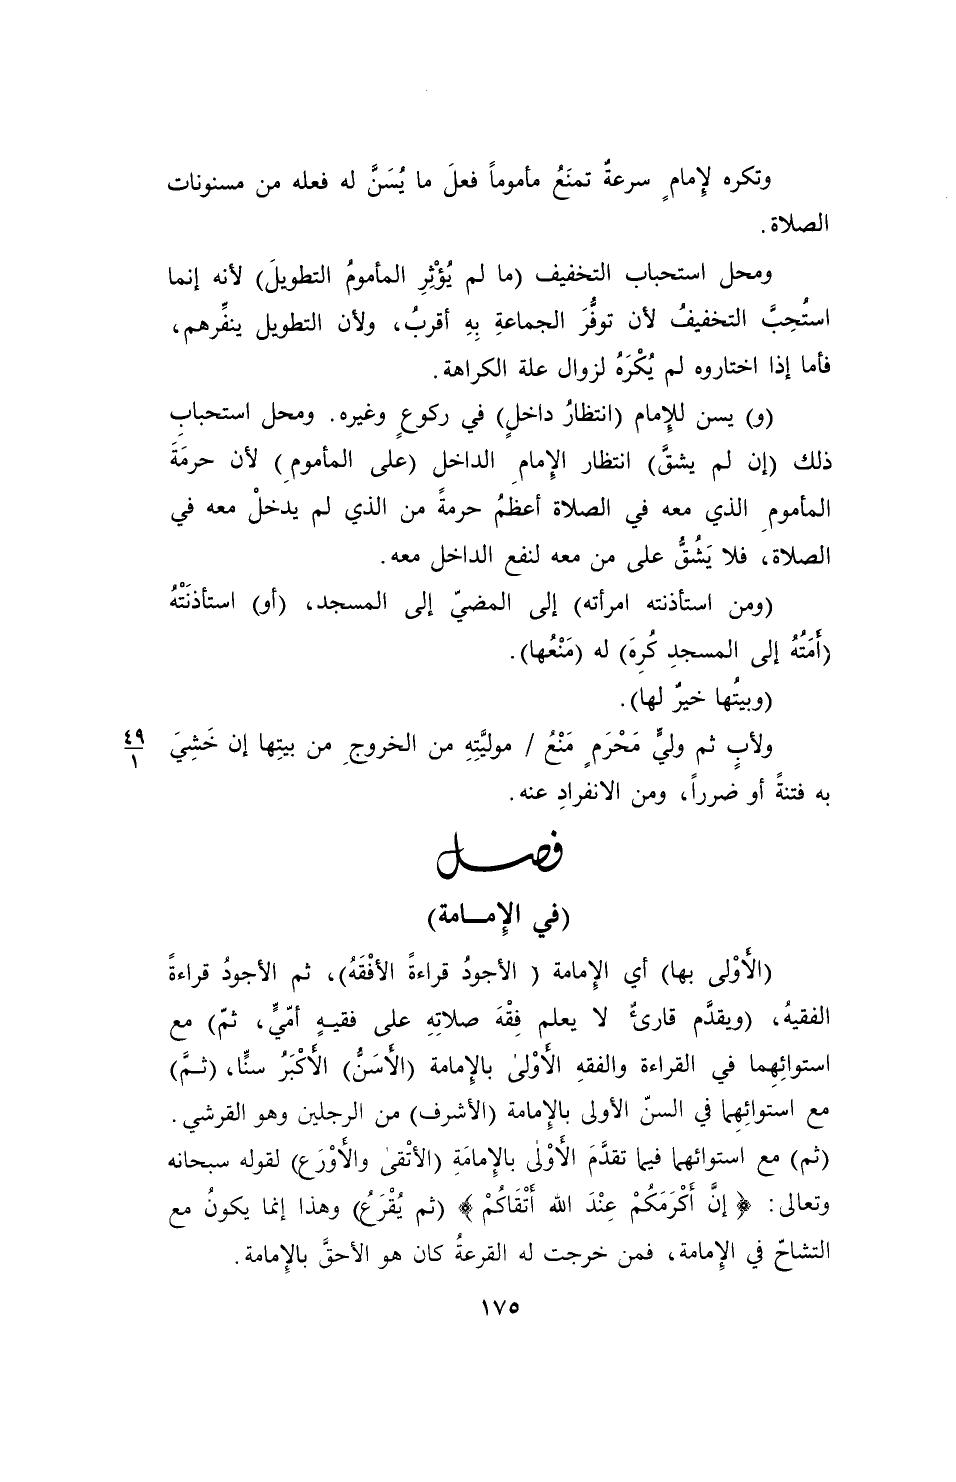 وتكره لإِمامٍ سرعةٌ تمنَعُ مأموماً فعلَ ما يُسَنَّ له فعله من مسنونات
الصلاة.
ومحل استحباب التخفيف (ما لم يُؤْثِرِ المأمومُ التطويلَ) لأنه إنما
استُحِبَّ التخفيفُ لأن توفُّرَ الجماعةِ بِهِ أقربُ، ولأن التطويل ينفِّرهم،
فأما إذا اختاروه لم يُكْرَهُ لزوال علة الكراهة.
(و) يسن للإِمام (انتظارُ داخلٍ) في ركوعٍ وغيره. ومحل استحبابِ
ذلك (إن لم يشقَّ) انتظار الإِمامِ الداخل (على المأمومِ) لأن حرمَةَ
المأمومِ الذي معه في الصلاة أعظمُ حرمةً من الذي لم يدخلْ معه في
الصلاة، فلا يَشُقُّ على من معه لنفع الداخل معه.
(ومن استأذنته امرأته) إلى المضيّ إلى المسجد، (أو) استأذنَتْهُ
(أَمَتُهُ إلى المسجدِ كُرِهَ) له (مَنْعُها).
(وبيتُها خيرٌ لها).
ولأبٍ ثم وليٍّ مَحْرَمٍ مَنْعُ / موليَّتِهِ من الخروجِ من بيتِها إن خَشِيَ
٤٩
١
به فتنةً أو ضرراً، ومن الانفرادِ عنه.
فصل
(في الإِمامة)
(الأَوْلى بها) أي الإِمامة (الأجودُ قراءةً الأفْقَهُ)، ثم الأجودُ قراءةً
الفقيهُ، (ويقدَّم قارىءٌ لا يعلم فِقْهَ صلاتِهِ على فقيهٍ أمّيٍّ، ثمّ) مع
استوائِهِما في القراءة والفقهِ الأَوْلىٰ بالإِمامة (الأَسَنُّ) الأَكْبَرُ سنًّا، (ثمَّ)
مع استوائِهِما في السنّ الأولى بالإِمامة (الأشرف) من الرجلين وهو القرشي.
(ثم) مع استوائهما فيما تقدَّمَ الأَوْلىٰ بالإِمامَةِ (الأتْقىٰ والأَوْرَع) لقوله سبحانه
وتعالى: ﴿إنَّ أَكْرَمَكُمْ عِنْدَ الله أَتْقَاكُمْ﴾ (ثم يُقْرَعُ) وهذا إنما يكونُ مع
التشاحّ في الإِمامة، فمن خرجت له القرعةُ كان هو الأحقَّ بالإِمامة.
١٧٥